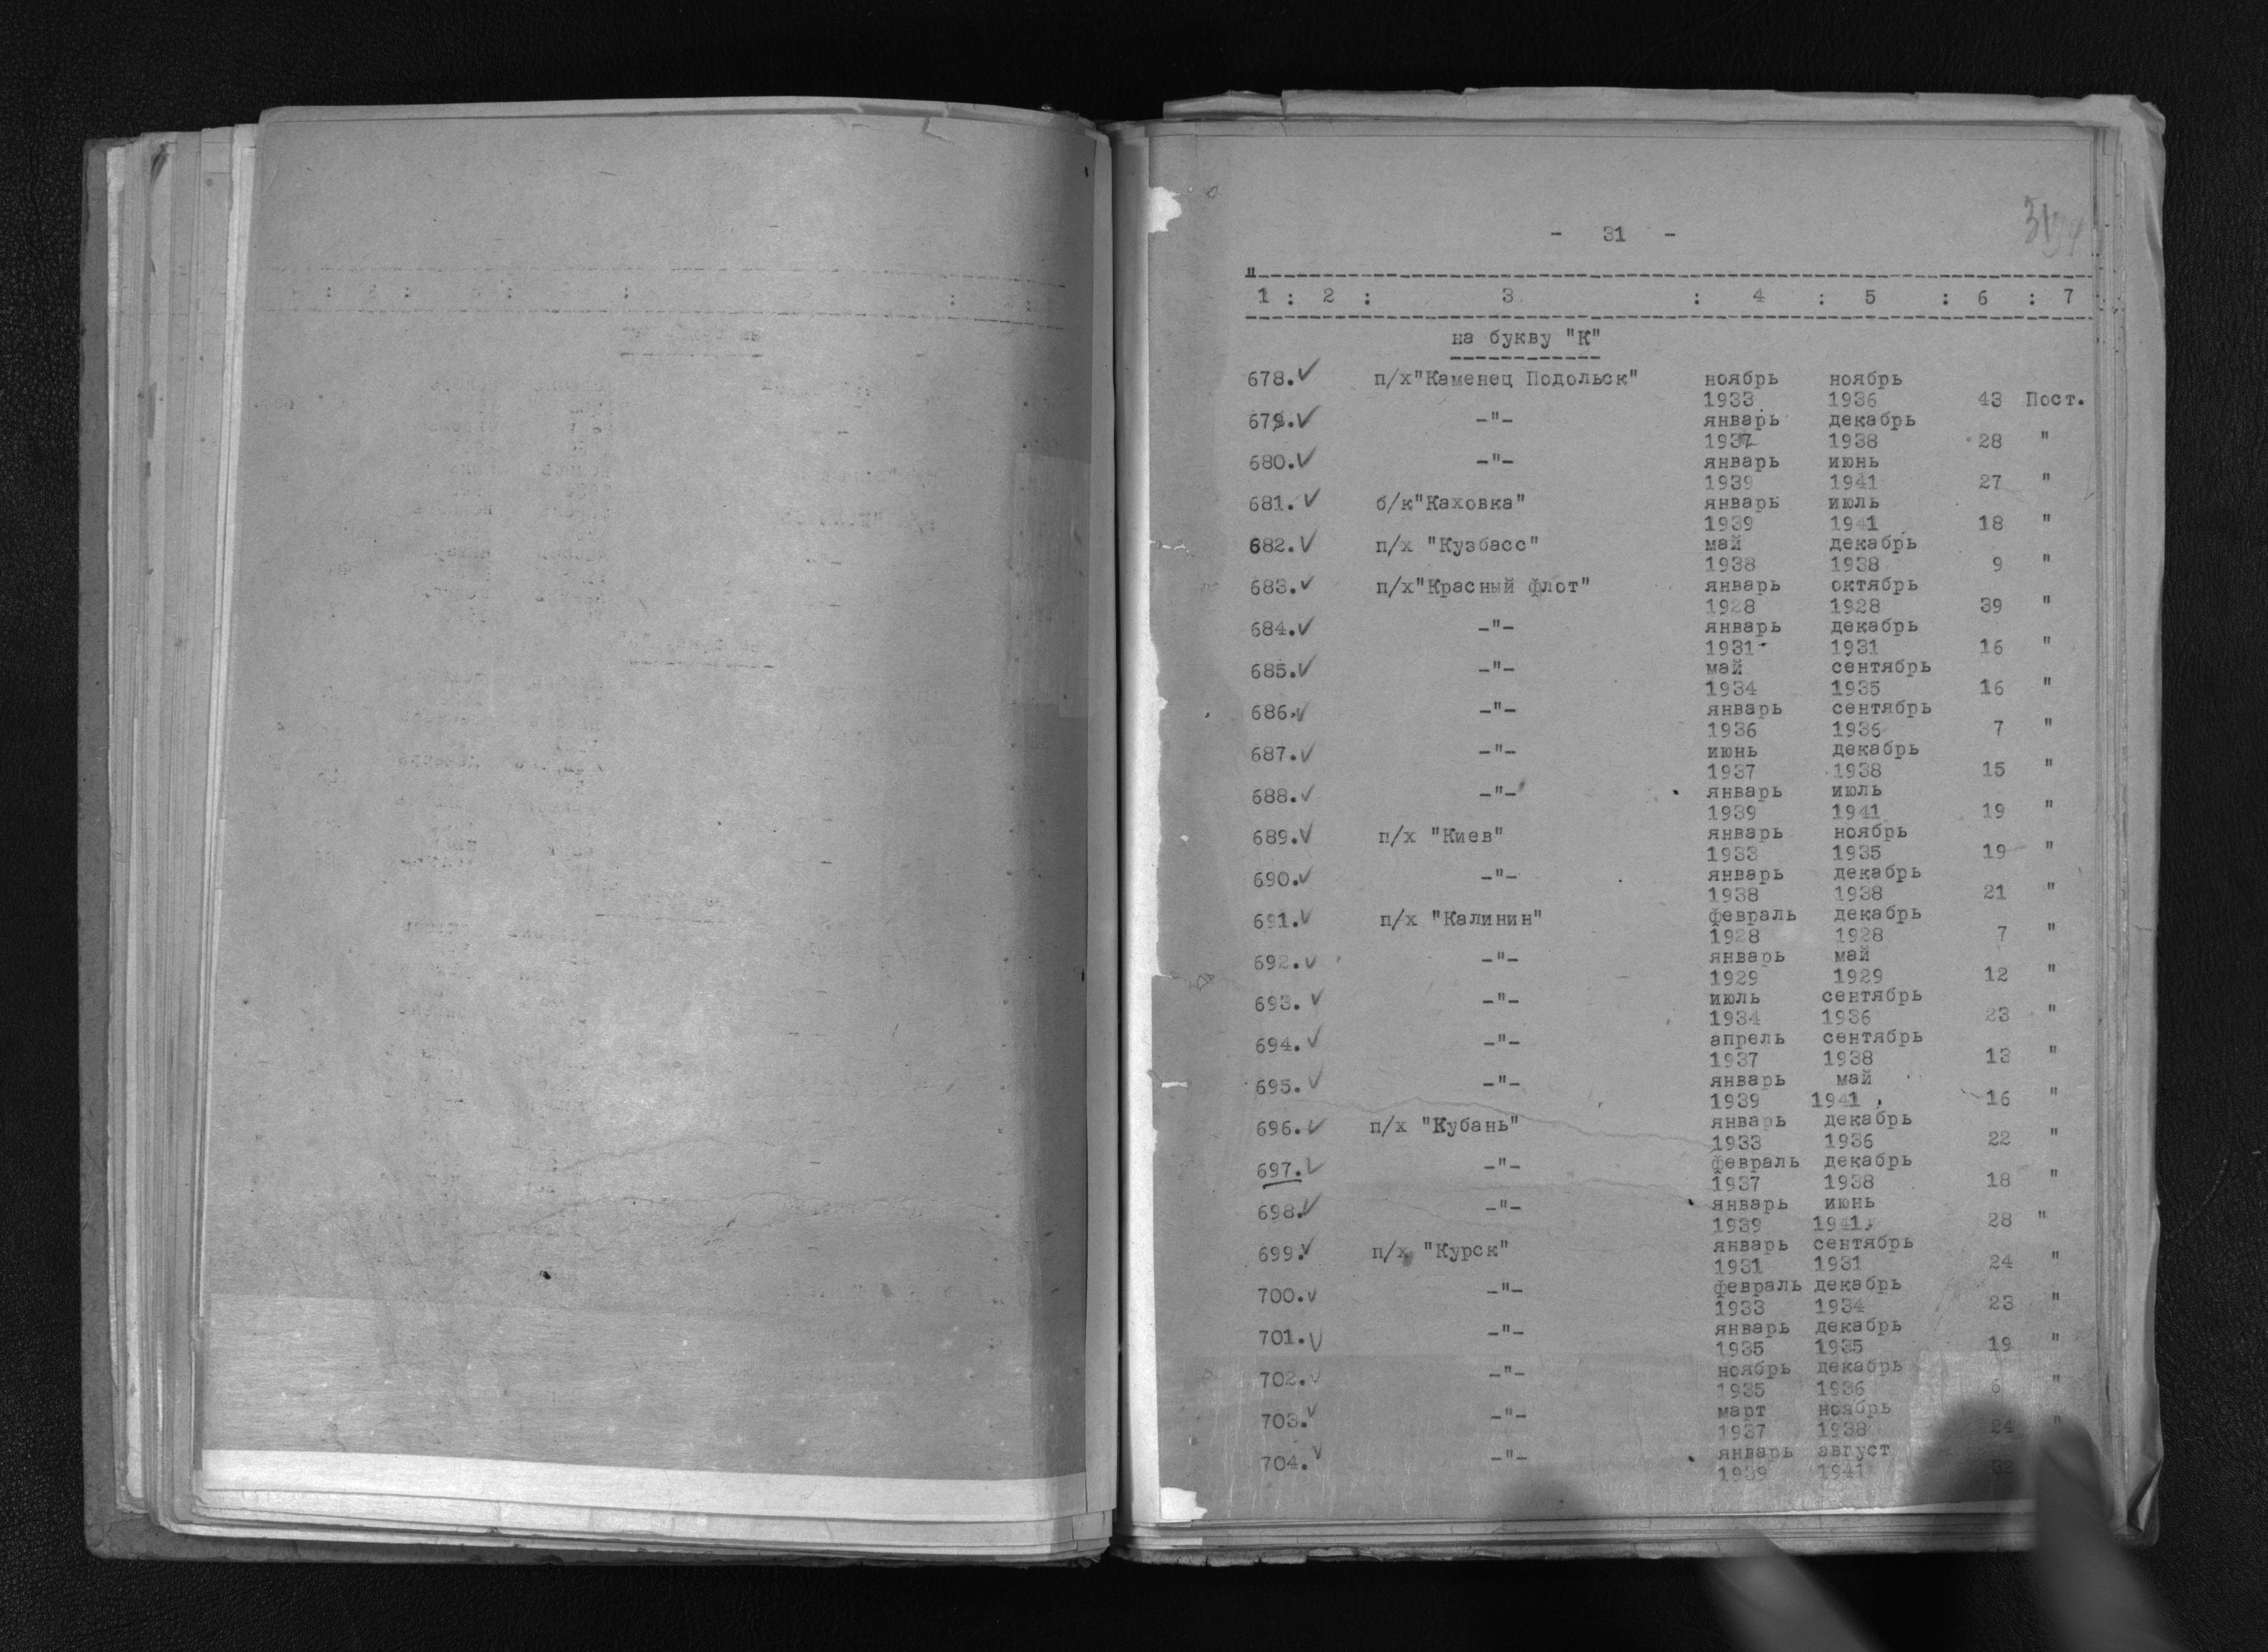 - 31 -
1 : 2 : 3 : 4 : 5 : 6 : 7
на букву "К"
678. п/х"Каменец Подольск" ноябрь ноябрь
1933 1936 43 Пост.
679. -"- январь декабрь
1937 1938 28 "
680. -"- январь июнь
1939 1941 27 "
681. б/к"Каховка" январь июль
1939 1941 18 "
682. п/х "Кузбасс" май декабрь
1938 1938 9 "
683. п/х"Красный флот" январь октябрь
1928 1928 39 "
684. -"- январь декабрь
1931 1931 16 "
685. -"- май сентябрь
1934 1935 16 "
686. -"- январь сентябрь
1936 1936 7 "
687. -"- июнь декабрь
1937 1938 15 "
688. -"- январь июль
1939 1941 19 "
689. п/х "Киев" январь ноябрь
1933 1935 19 "
690. -"- январь декабрь
1938 1938 21 "
691. п/х "Калинин" февраль декабрь
1928 1928 7 "
692. -"- январь май
1929 1929 12 "
693. -"- июль сентябрь
1934 1936 23 "
694. -"- апрель сентябрь
1937 1938 13 "
695. -"- январь май
1939 1941 16 "
696. п/х "Кубань" январь декабрь
1933 1936 22 "
697. -"- февраль декабрь
1937 1938 18 "
698. -"- январь июнь
1939 1941 28 "
699. п/х "Курск" январь сентябрь
1931 1931 24 "
700. -"- февраль декабрь
1933 1934 23 "
701. -"- январь декабрь
1935 1935 19 "
702. -"- ноябрь декабрь
1935 1936 6 "
703. -"- март ноябрь
1937 1938 24 "
704. -"- январь август
1939 1941